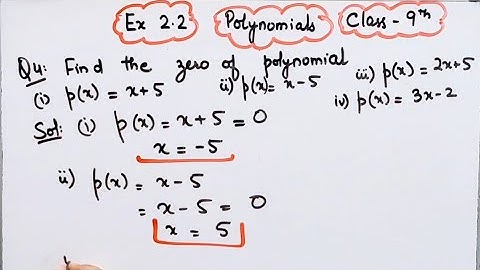 Ex 2.2 Polynomials Class - 9th
Q4: Find the zero of polynomial
(i) p(x) = x+5 ii) p(x) = x-5 iii) p(x) = 2x+5
iv) p(x) = 3x-2
Sol: (i) p(x) = x+5 = 0
x = -5
ii) p(x) = x-5
= x-5 = 0
x = 5